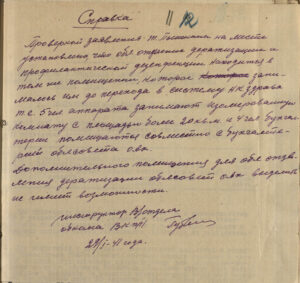 Справка
11 12
Проверкой заявления т. Пышкина на месте
установлено, что обл отделение дератизации и
профилактической дезенфекции находится в
тем же помещении, которое зани-
малось им до перехода в систему НК Здрава
т.е. 5 чел аппарата занимают изолированную
комнату с площадью более 20 кв.м. и 4 чел бухгал
терии помещаются совместно с бухгалте-
рией облсовета
Дополнительного помещения для обл отде-
ления дератизации облсовет выделить
не имеет возможности.
инструктор В/отдела
обкома ВКП/б
29/I-41 года.